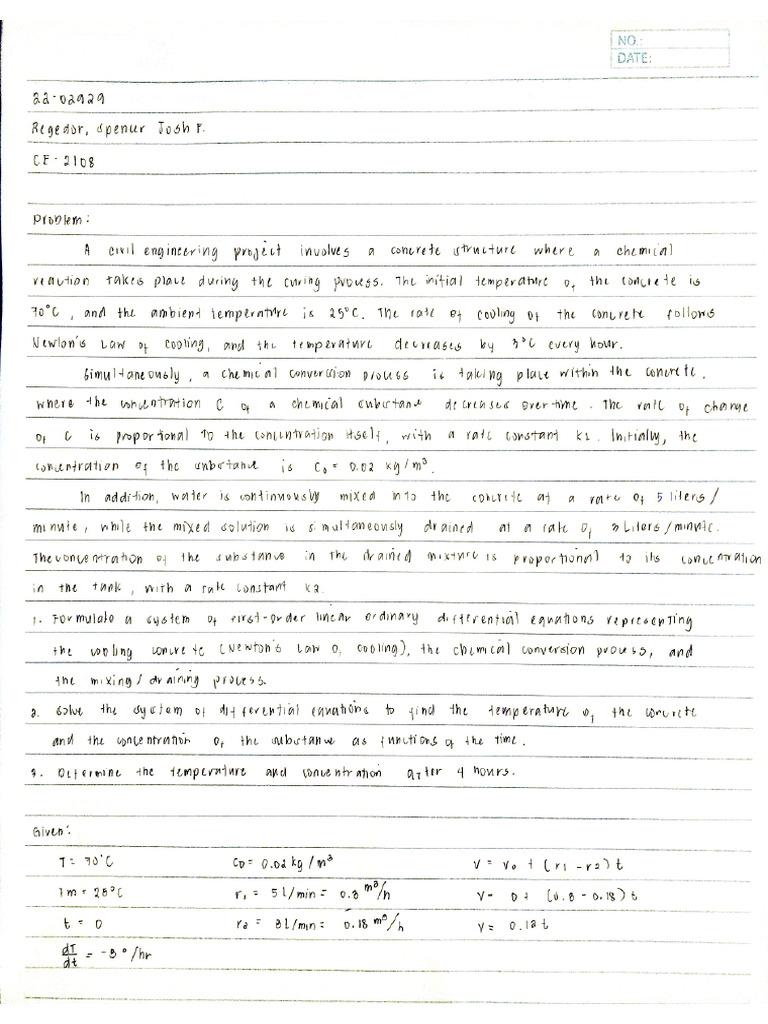 NO.:
DATE:
22-02929
Regedor, Spencer Josh F.
CE-2108
Problem:
A civil engineering project involves a concrete structure where a chemical
reaction takes place during the curing process. The initial temperature of the concrete is
70°C, and the ambient temperature is 25°C. The rate of cooling of the concrete follows
Newton's Law of Cooling, and the temperature decreases by 3°C every hour.
Simultaneously, a chemical conversion process is taking place within the concrete.
where the concentration C of a chemical substance decreases over time. The rate of change
of C is proportional to the concentration itself, with a rate constant k1. Initially, the
concentration of the substance is C₀ = 0.02 kg/m³.
In addition, water is continuously mixed into the concrete at a rate of 5 liters/
minute, while the mixed solution is simultaneously drained at a rate of 3 Liters/minute.
The concentration of the substance in the drained mixture is proportional to its concentration
in the tank, with a rate constant k2.
1. Formulate a system of first-order linear ordinary differential equations representing
the cooling concrete (Newton's Law of Cooling), the chemical conversion process, and
the mixing/draining process.
2. Solve the system of differential equations to find the temperature of the concrete
and the concentration of the substance as functions of the time.
3. Determine the temperature and concentration after 4 hours.
Given:
T = 70°C C₀ = 0.02 kg/m³ V = V₀ + (r1 - r2) t
Tm = 25°C r₁ = 5 l/min = 0.3 m³/h V = 0 + (0.3 - 0.18) t
t = 0 r₂ = 3 l/min = 0.18 m³/h V = 0.12t
dT/dt = -3°/hr